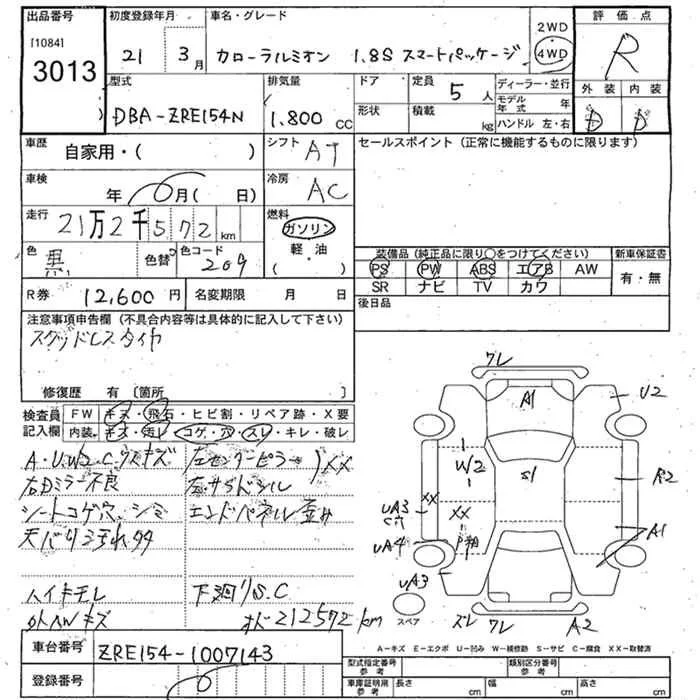 出品番号 初度登録年月 車名・グレード 2WD 評価点
[1084]
3013 21 3月 カローラルミオン 1.8S スマートパッケージ 4WD R
型式 排気量 ドア 定員 5人 ディーラー・並行 外装 内装
DBA-ZRE154N 1.800cc 形状 積載 kg モデル年式 年 D D
ハンドル 左・右
車歴 自家用・( ) シフト AT セールスポイント (正常に機能するものに限ります)
車検 年 月( 日) 冷房 AC
走行 21万2千572km 燃料 ガソリン
軽・油
( ・ )
色 黒 色替 色コード 209 装備品(純正品に限り○をつけてください) 新車保証書
PS PW ABS エアB AW 有・無
SR ナビ TV カワ
R券 12,600円 名変期限 月 日 後日品
注意事項申告欄 (不具合内容等は具体的に記入して下さい)
スタッドレスタイヤ
修復歴 有 [箇所 ]
検査員 FW キズ・飛石・ヒビ割・リペア跡・X要
記入欄 内装 キズ・汚レ・コゲ・穴・スレ・キレ・破レ
A・U.W.S.C.ウスキズ 左センターピラー XX
右Dミラー不良 左サイドシル
シートコゲ穴、シミ エンドパネル歪み
天バリ汚れ
ハイキモレ 下廻りS.C
外AWキズ 212572km
ワレ
A1
U2
W2
S1
R2
UA3
C穴
XX
XX
A1
UA4
UA3
スペア
ズレ ワレ A2
A-キズ E-エクボ U-凹み W-補修跡 S-サビ C-腐食 XX-取替済
車台番号 ZRE154-1007143
登録番号
型式指定番号 参考 類別区分番号 参考
車庫証明用 参考 長さ cm 幅 cm 高さ cm